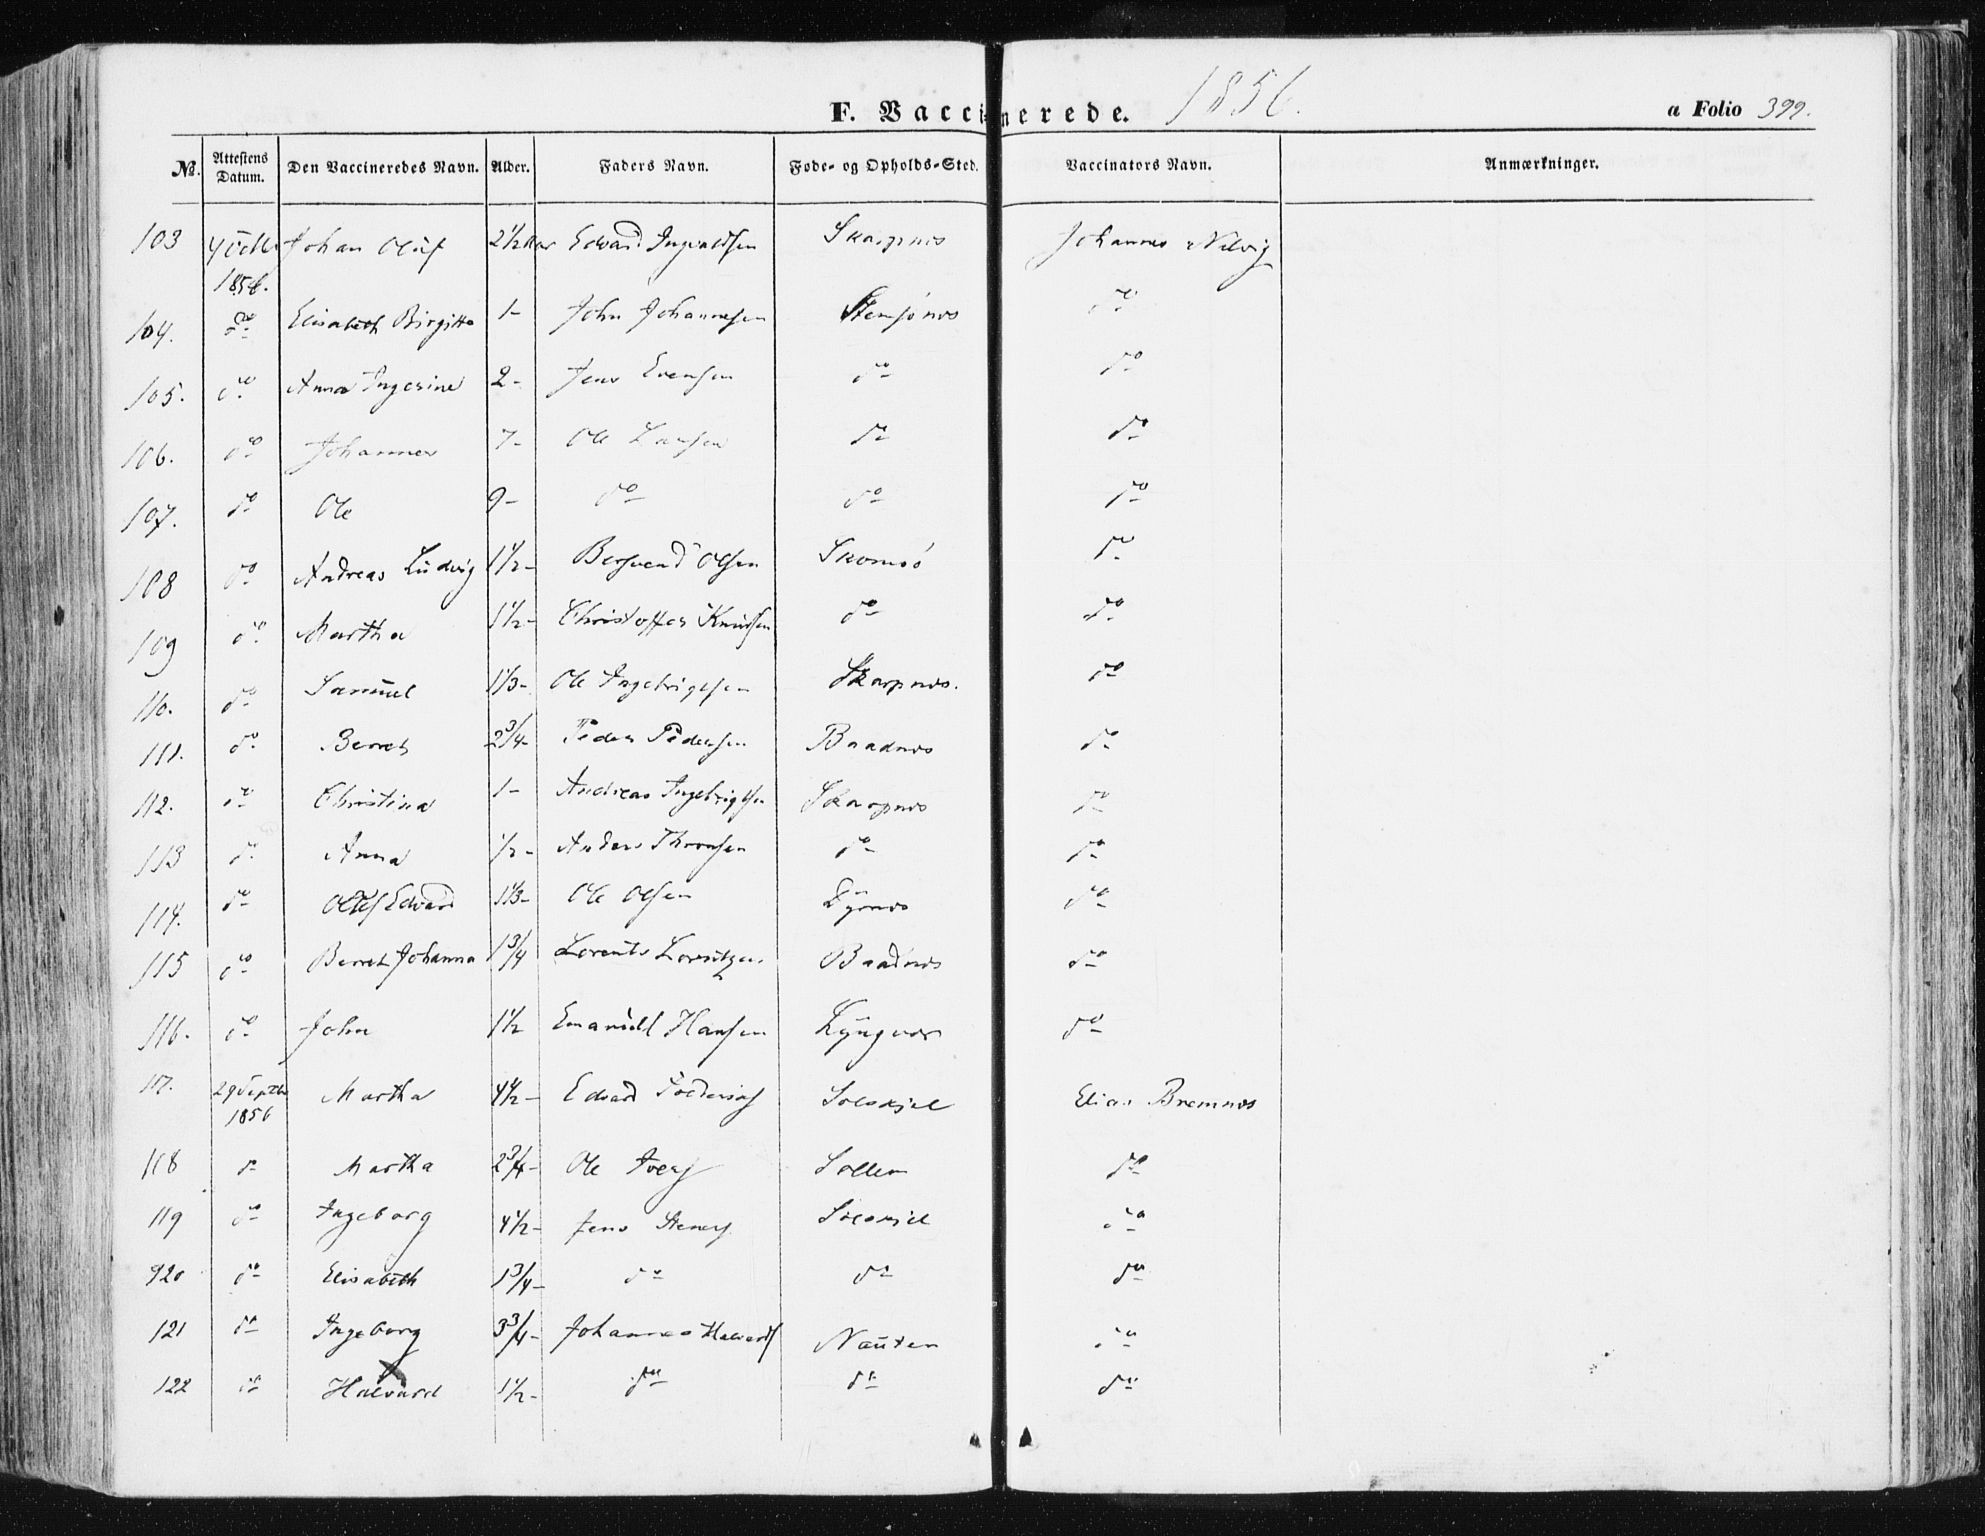 F. Vaccinerede. 1856. a Folio 399.
No. Attestens Datum. Den Vaccineredes Navn. Alder. Faders Navn. Føde- og Opholds-Sted. Vaccinators Navn. Anmærkninger.
103 4 Octbr 1856. Johan Oluf 2 1/2 Aar Edvard Ingvaldsen Skarpnes Johannes
104. do Elisabeth Birgitte 1- John Johannesen do
105. do Anna Ingerine 2- Jens Evensen do do
106. do Johannes 7- Ole Larsen do do
107. do Ole 9- do do do
108 do Andreas Ludvig 1 1/2- Bersvend Olsen Skomsö do
109 do Martha 1 1/2- Christoffer Knudsen do do
110. do Samuel 1 1/3- Ole Ingebrigtsen Skarpnes. do
111. do Berret 2 3/4- Peder Pedersen Baadnes do
112. do Christina 1- Andreas Ingebrigtsen Skarpnes do
113 do Anna 1/2- Anders Thronsen do do
114. do Edvard 1 1/3- Ole Olsen do
115 do Berret Johanna 1 3/4 Lorents Lorentzen Baadnes do
116. do John 1 1/2 Emanuel Hansen Lyngvær do
117. 29 Septbr 1856 Martha 4 1/2- Edvard Solskjel Elias Bremnes
118 do Martha 2 3/4- Ole Ivers Sollien do
119 do Ingeborg 4 1/2- Jens Steners Solskjel do
120 do Elisabeth 1 3/4- do do do
121 do Ingeborg 3 3/4- Johannes Halvards Nauten do
122 do Halvard 1 1/2- do do do